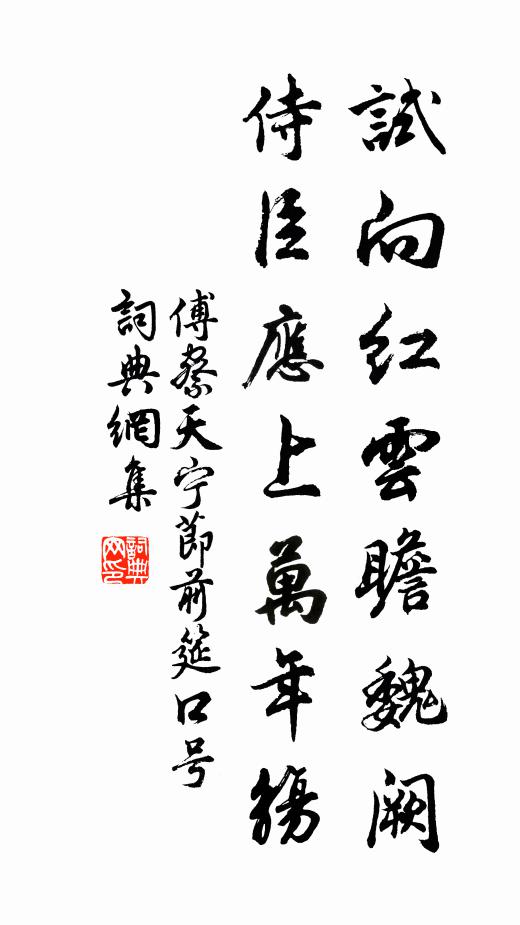 試向紅雲瞻魏阙
侍臣應上萬年觴
傅察天宁節前筵口号
詞典網集
詞典网印